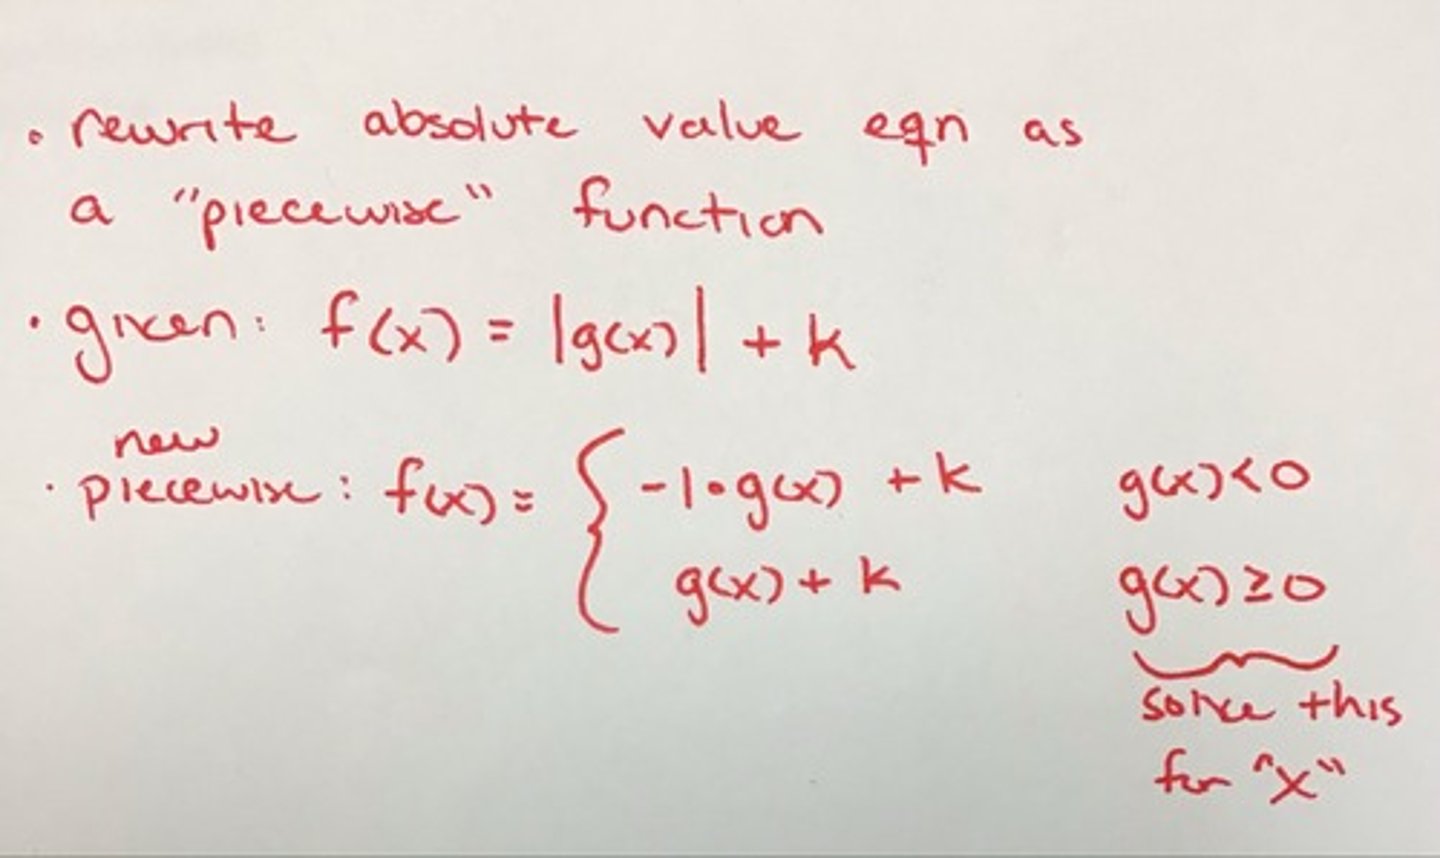 • rewrite absolute value eqn as
a "piecewise" function
• given: f(x) = |g(x)| + k
new
• piecewise: f(x) = { -1•g(x) + k g(x)<0
g(x) + k g(x)≥0
solve this
for "x"